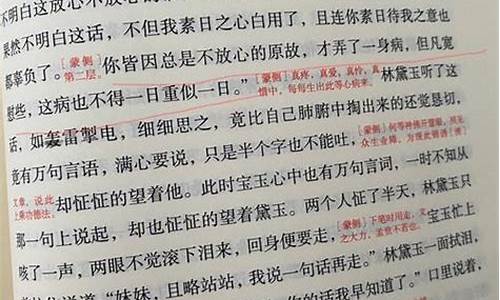 不明白这放心不放心的
果然不明白这话，不但我素日之心白用了，且连你素日待我之意也
都辜负了。[蒙侧]第二层。你皆因总是不放心的原故，才弄了一身病，但凡宽
慰些，这病也不得一日重似一日。”[蒙侧]真疼，真爱，真怜，真惜中，每每生出此等心病来。林黛玉听了这
话，如轰雷掣电，细细思之，竟比自己肺腑中掏出来的还觉恳切，
竟有万句言语，满心要说，只是半个字也不能吐，[蒙侧]何等神佛开慧眼，照见众生业障，为现此锦绣
文章，说此上乘功德法。却怔怔的望着他。此时宝玉心中也有万句言词，一时不知从
那一句上说起，却也怔怔的望着黛玉。两个人怔了半天，林黛玉只
咳了一声，两眼不觉滚下泪来，回身便要走，[蒙侧]下笔时用走，文之大力，孟贲不若也。宝玉忙上
说道：“妹妹，且略站站，我说一句话再走。”林黛玉一面拭泪，
你的话我早知道了。”口里说着，